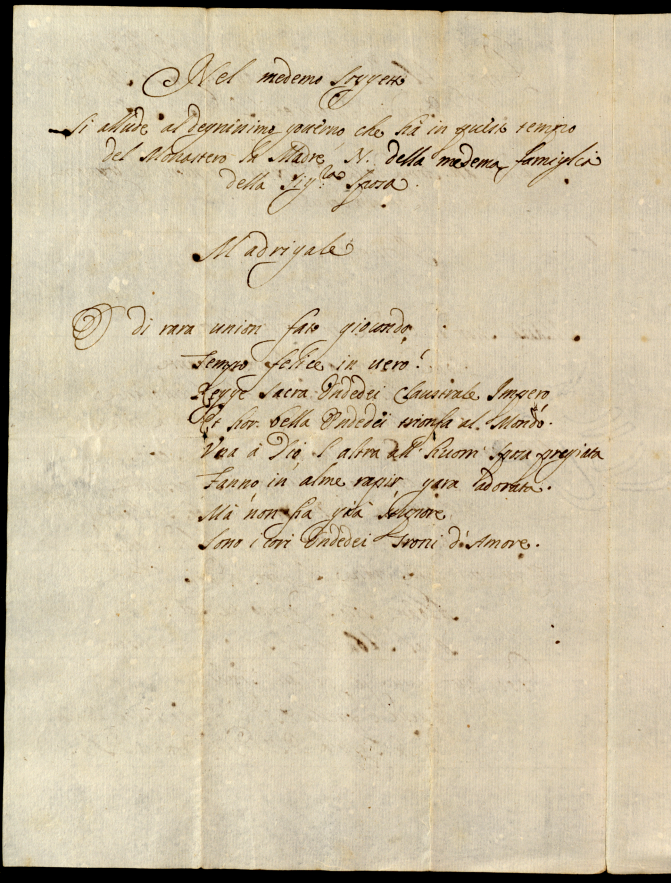 Nel medemo soggetto
Si allude al degnissimo governo che hà in questo tempo
del Monastero la Madre N. della medema famiglia
della Sig.ra Sposa.
Madrigale
O di rara union fato giocondo
Tempo felice in vero!
Regge sacra Ondedei Claustrale Impero
Et hor bella Ondedei trionfa al Mondo.
Una à Dio, l'altra all'huom sposa pregiata
Fanno in alme rapir gara adorata.
Mà non fia già stupore
Sono i cori Ondedei Troni d'Amore.